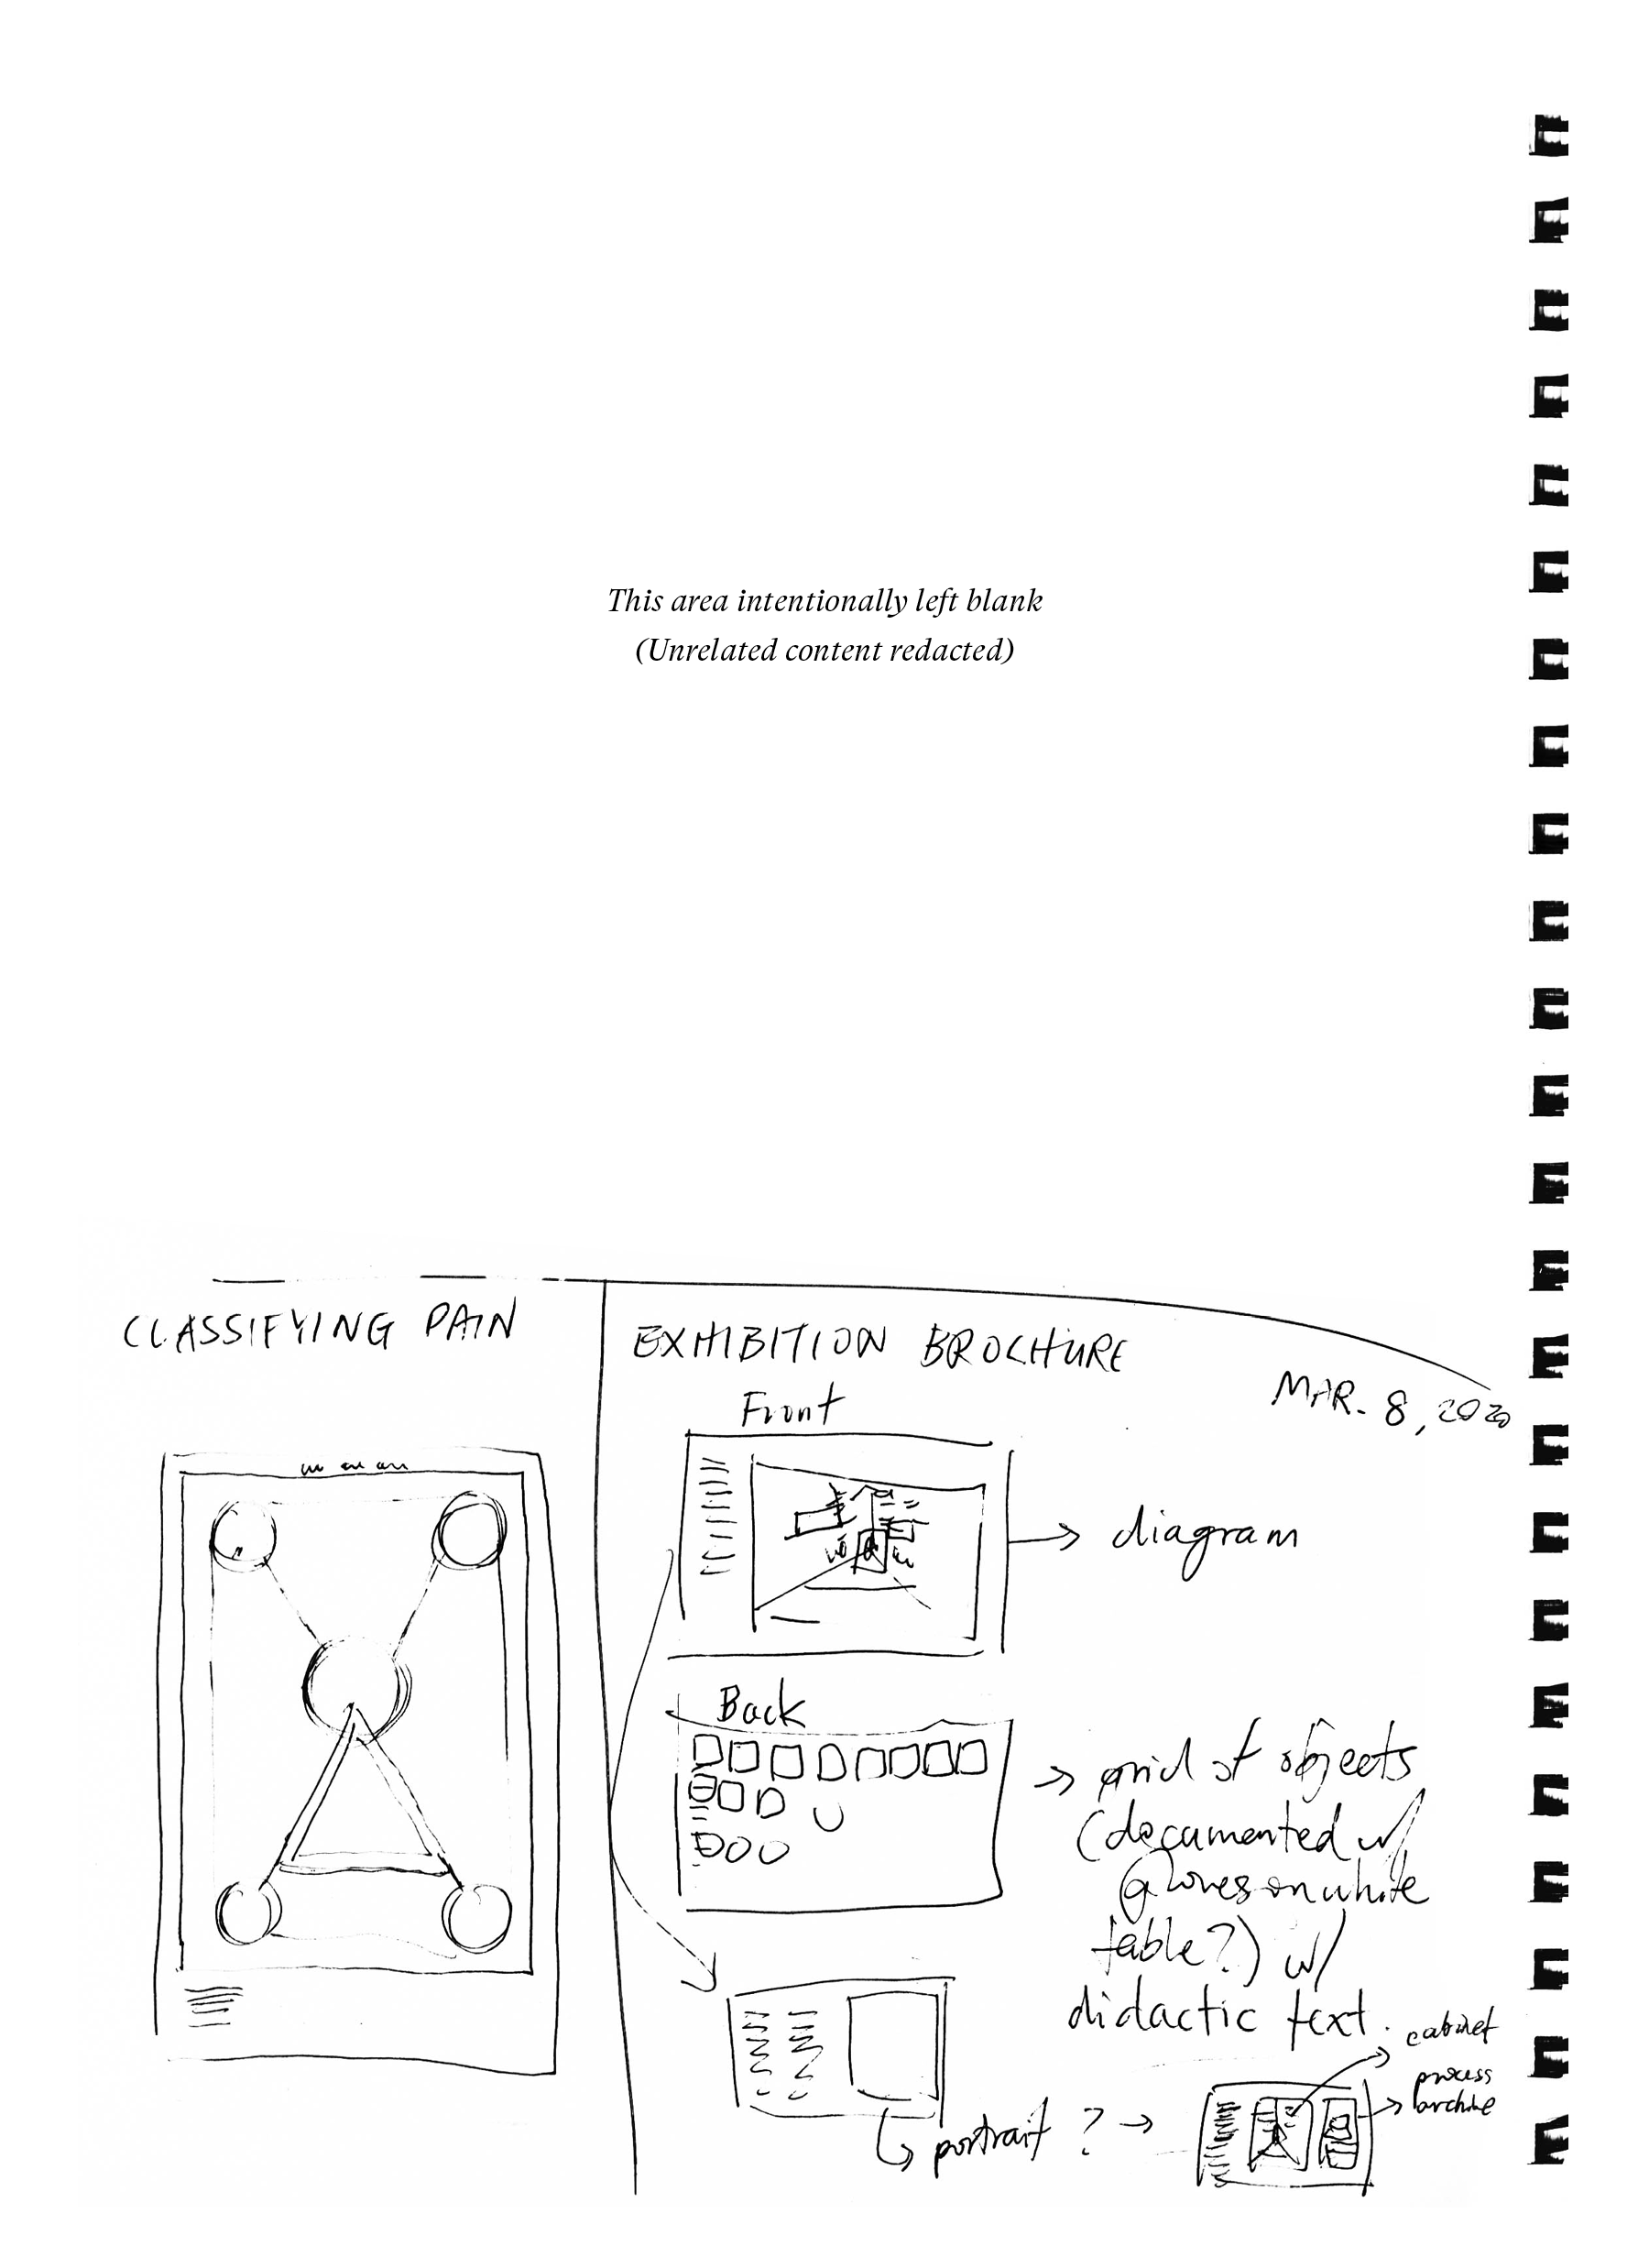 This area intentionally left blank
(Unrelated content redacted)
CLASSIFYING PAIN
EXHIBITION BROCHURE
MAR. 8, 2020
Front
→ diagram
Back
→ grid of objects
(documented w/
gloves on white
table?) w/
didactic text.
portrait ? →
cabinet
process
archive